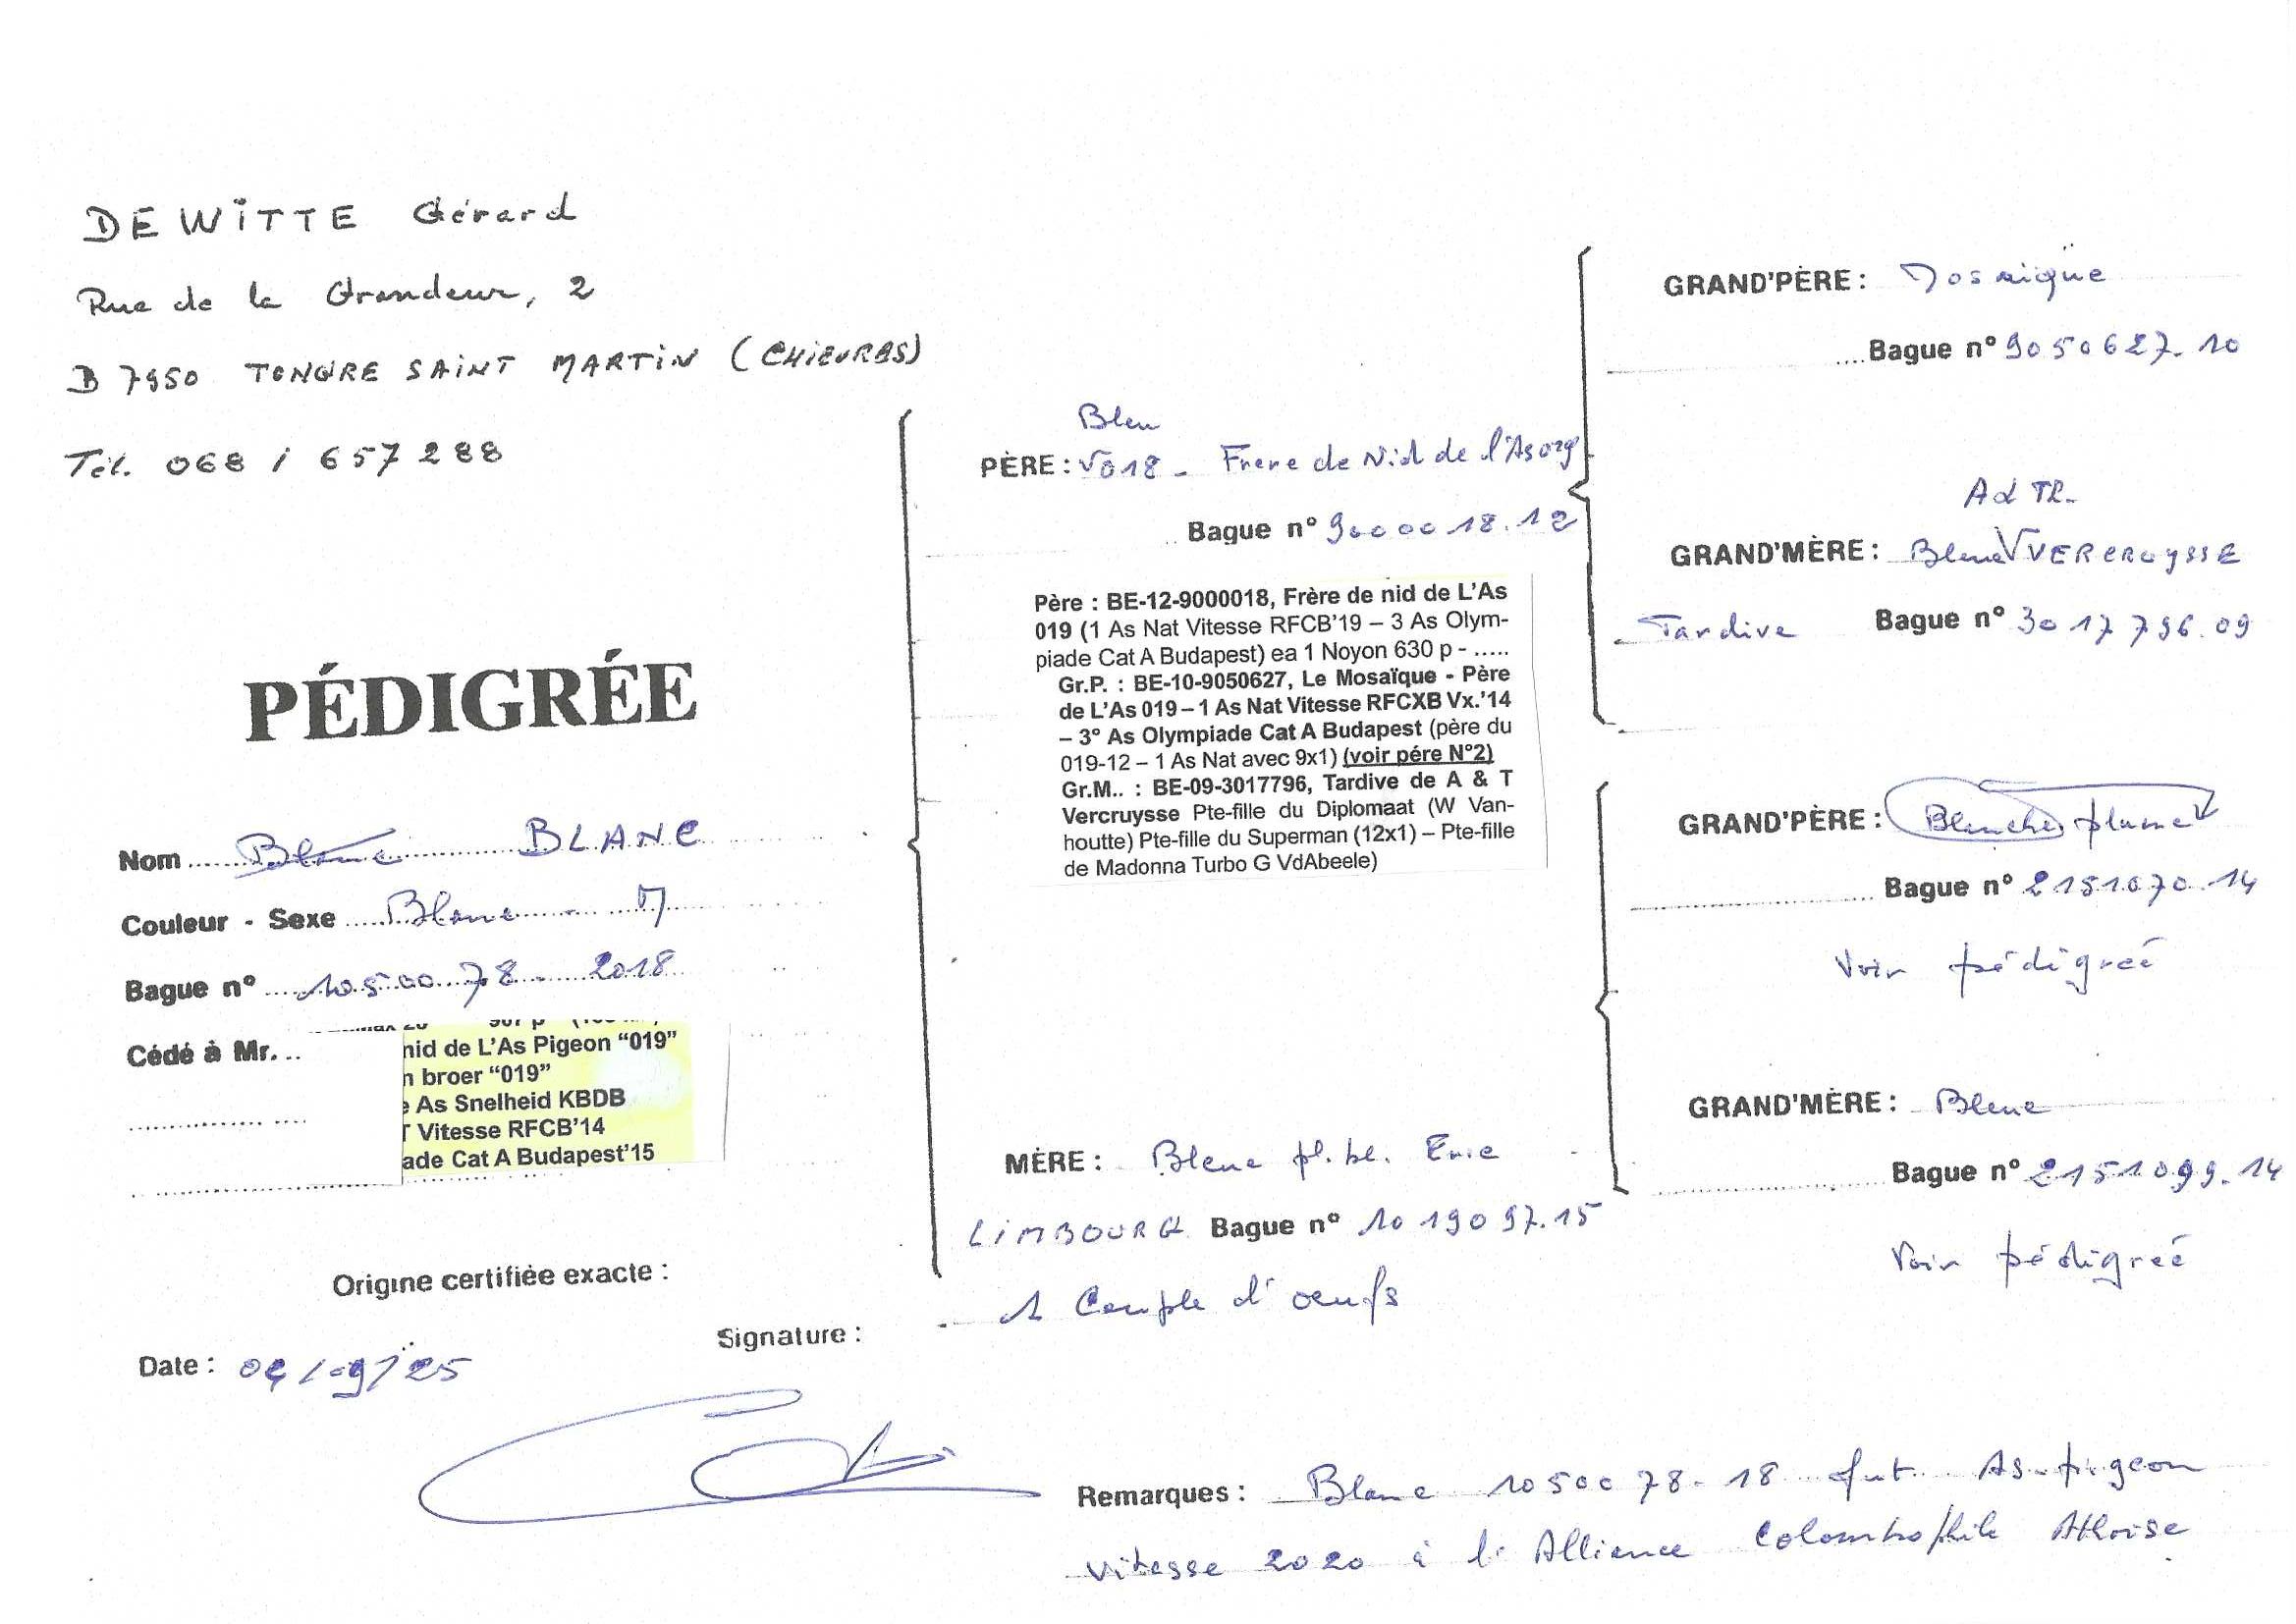 DEWITTE Gérard
Rue de la Grandeur, 2
B 7950 TONGRE SAINT MARTIN (CHIEVRES)
Tél. 068 / 657288
PÉDIGRÉE
Nom BLANC
Couleur - Sexe Blanc - M
Bague n° 10500 78 - 2018
Cédé à Mr.
nid de L'As Pigeon "019"
n broer "019"
e As Snelheid KBDB
T Vitesse RFCB'14
ade Cat A Budapest'15
Origine certifiée exacte :
Signature :
Date : 04/09/25
Bleu
PÈRE : V018 - Frere de Nid de l'As 019
Bague n° 9000018.12
Père : BE-12-9000018, Frère de nid de L'As
019 (1 As Nat Vitesse RFCB'19 – 3 As Olym-
piade Cat A Budapest) ea 1 Noyon 630 p - .....
Gr.P. : BE-10-9050627, Le Mosaïque - Père
de L'As 019 – 1 As Nat Vitesse RFCXB Vx.'14
– 3° As Olympiade Cat A Budapest (père du
019-12 – 1 As Nat avec 9x1) (voir pére N°2)
Gr.M.. : BE-09-3017796, Tardive de A & T
Vercruysse Pte-fille du Diplomaat (W Van-
houtte) Pte-fille du Superman (12x1) – Pte-fille
de Madonna Turbo G VdAbeele)
MÈRE : Bleue pl. bl. Eric
LIMBOURG Bague n° 10 19097.15
1 Couple d'oeufs
GRAND'PÈRE : Mosaique
Bague n° 9050627.10
A & TR.
GRAND'MÈRE : Bleue VERCRUYSSE
Tardive Bague n° 3017796.09
GRAND'PÈRE : Blanches plumes
Bague n° 2151070.14
Voir pédigreé
GRAND'MÈRE : Bleue
Bague n° 2151099.14
Voir pédigreé
Remarques : Blanc 10500 78-18 fut As-pigeon
vitesse 2020 à l'Alliance Colombophile Athoise